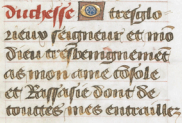 duchesse O tresglo
rieux seigneur et mō
dieu tresbenignemēt
as mon ame cōsole
et Rassasie dont de
touttes mes entrailles